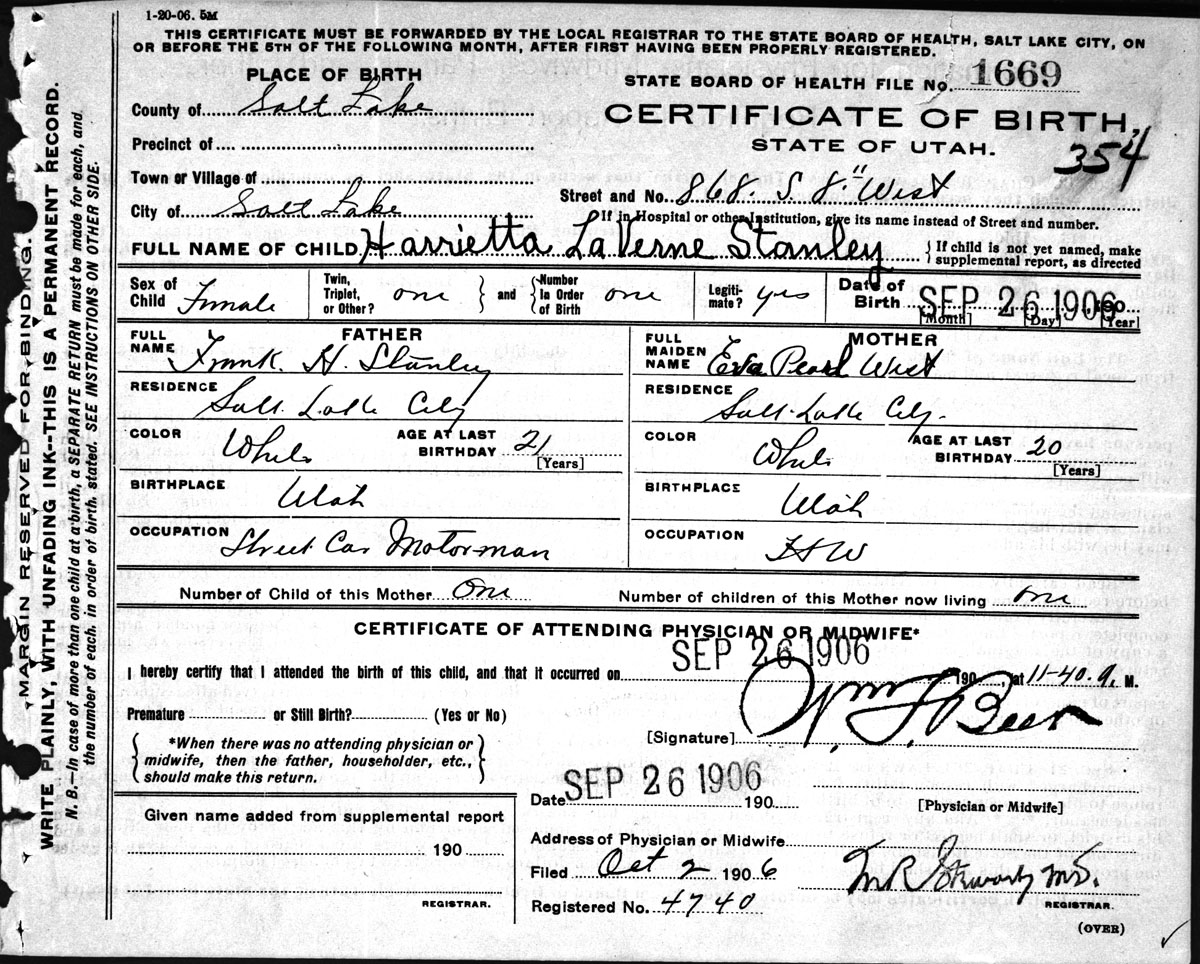 1-20-06. 5M
THIS CERTIFICATE MUST BE FORWARDED BY THE LOCAL REGISTRAR TO THE STATE BOARD OF HEALTH, SALT LAKE CITY, ON
OR BEFORE THE 5TH OF THE FOLLOWING MONTH, AFTER FIRST HAVING BEEN PROPERLY REGISTERED.
MARGIN RESERVED FOR BINDING.
WRITE PLAINLY, WITH UNFADING INK--THIS IS A PERMANENT RECORD.
N. B.—In case of more than one child at a birth, a SEPARATE RETURN must be made for each, and
the number of each, in order of birth, stated. SEE INSTRUCTIONS ON OTHER SIDE.
PLACE OF BIRTH
STATE BOARD OF HEALTH FILE No. 1669
County of Salt Lake
CERTIFICATE OF BIRTH.
Precinct of
STATE OF UTAH.
354
Town or Village of
Street and No. 868. S. 8" West
City of Salt Lake
If in Hospital or other Institution, give its name instead of Street and number.
FULL NAME OF CHILD Harrietta LaVerne Stanley
If child is not yet named, make
supplemental report, as directed
Sex of Child Female
Twin, Triplet, or Other? one
and
Number In Order of Birth one
Legiti-mate? yes
Date of Birth SEP 26 1906 190
[Month] [Day] [Year]
FATHER
FULL NAME Frank H. Stanley
MOTHER
FULL MAIDEN NAME Eva Pearl West
RESIDENCE Salt Lake City
RESIDENCE Salt Lake City.
COLOR White AGE AT LAST BIRTHDAY 21 [Years]
COLOR White AGE AT LAST BIRTHDAY 20 [Years]
BIRTHPLACE Utah
BIRTHPLACE Utah
OCCUPATION Street Car Motorman
OCCUPATION HW
Number of Child of this Mother One
Number of children of this Mother now living one
CERTIFICATE OF ATTENDING PHYSICIAN OR MIDWIFE*
I hereby certify that I attended the birth of this child, and that it occurred on SEP 26 1906 190, at 11-40 a. M.
Premature or Still Birth? (Yes or No)
[Signature] Wm F Beer
*When there was no attending physician or
midwife, then the father, householder, etc.,
should make this return.
Date SEP 26 1906 190
[Physician or Midwife]
Given name added from supplemental report
190
REGISTRAR.
Address of Physician or Midwife
Filed Oct 2 1906
Registered No. 4740
M.D.
REGISTRAR.
(OVER)